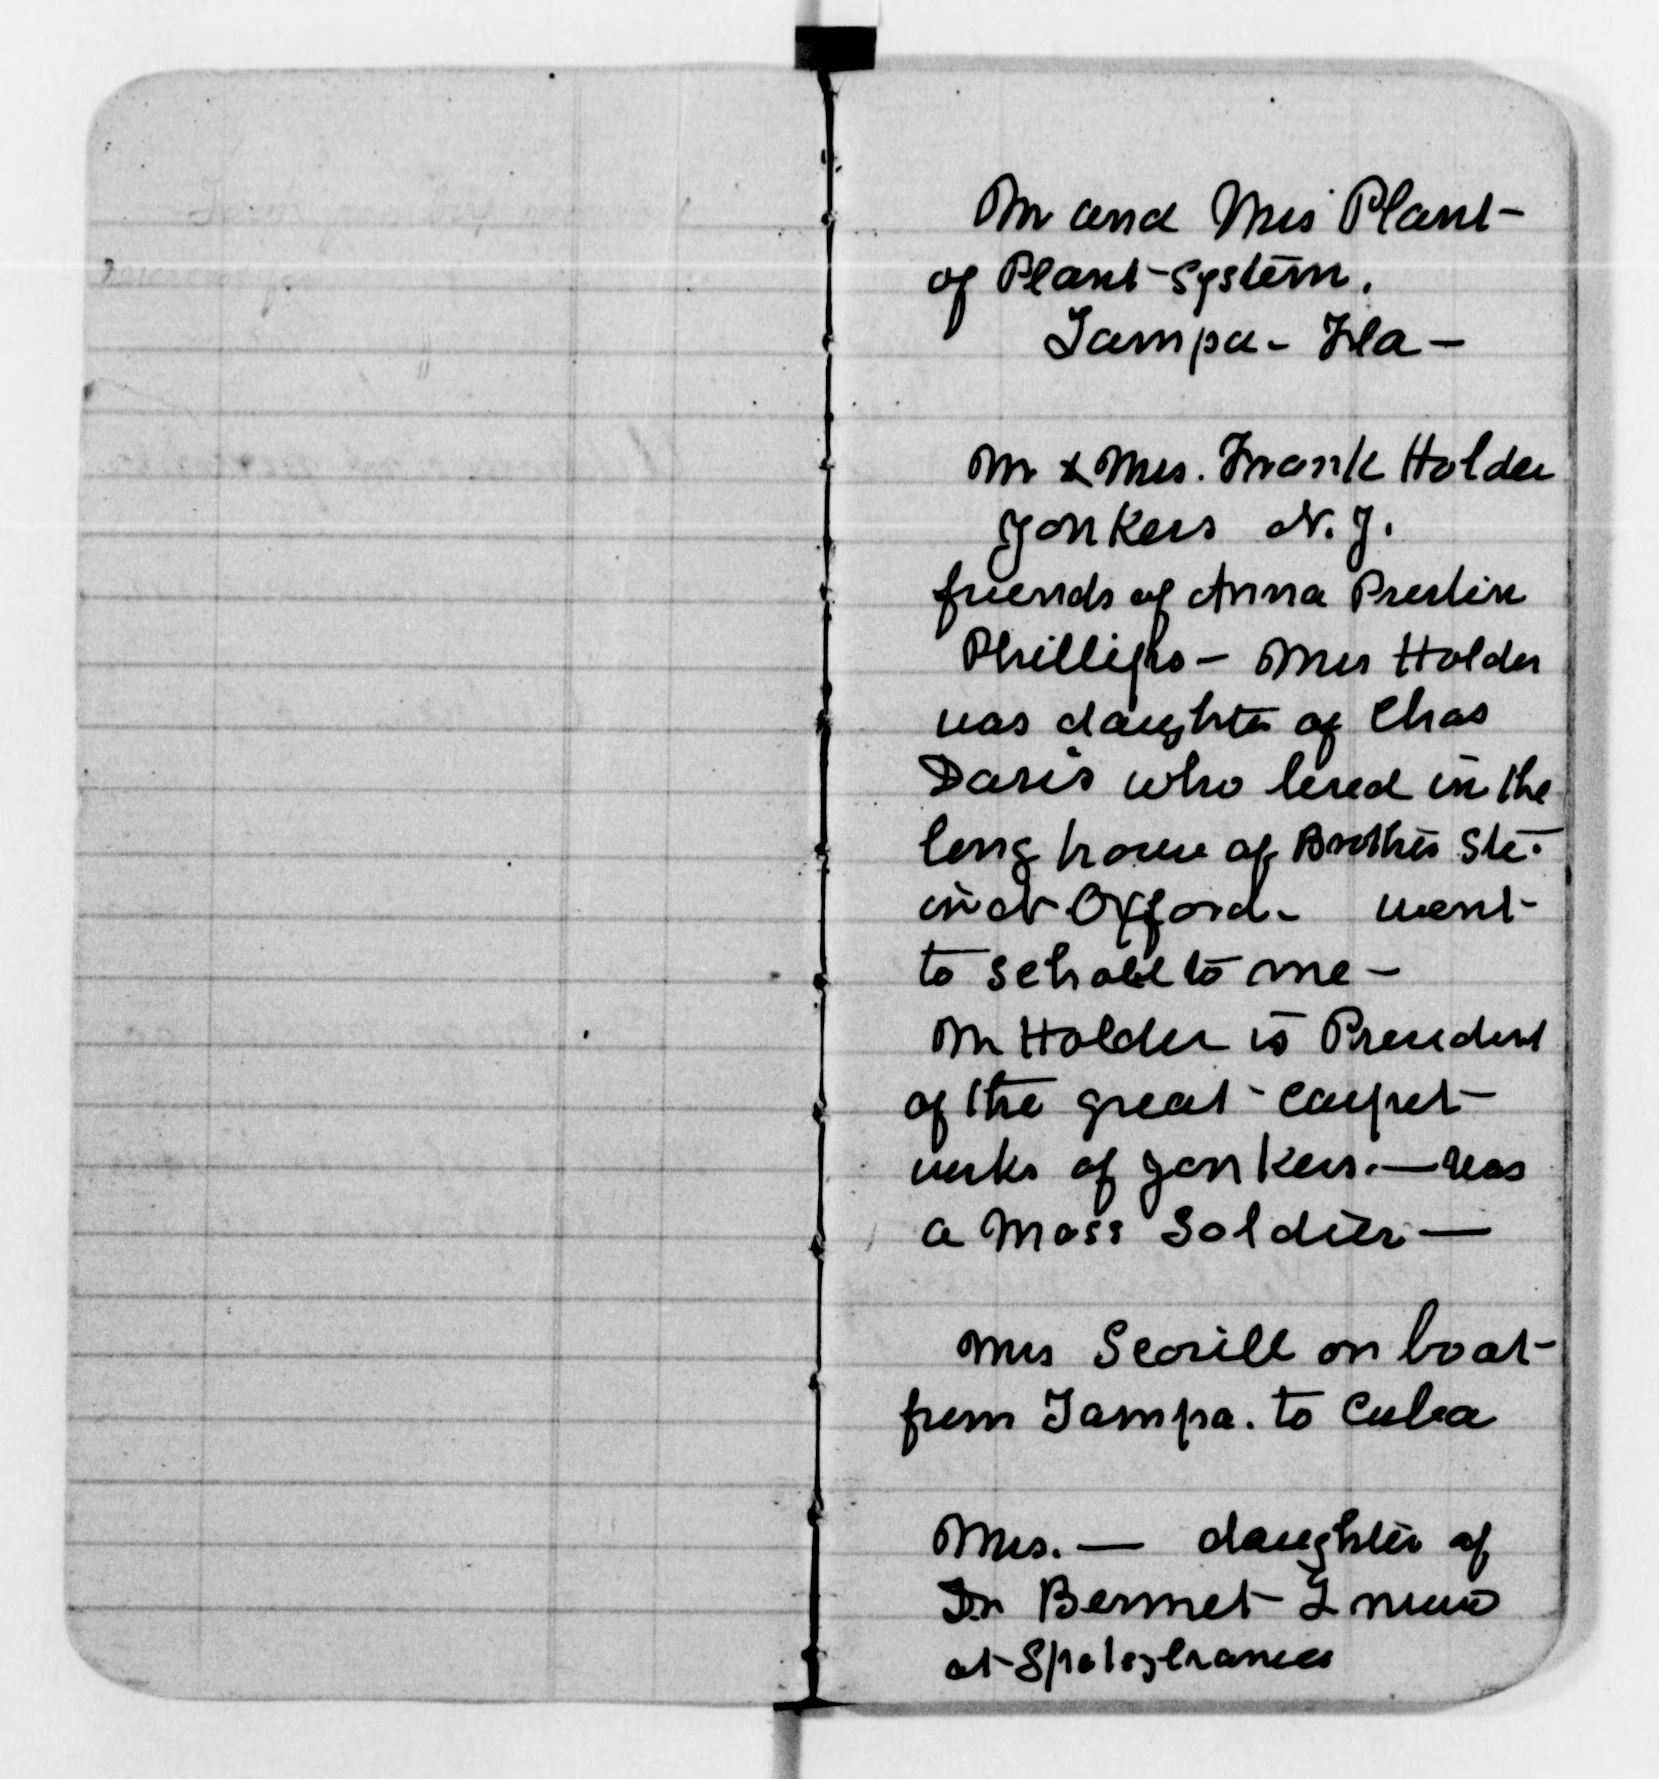 Mr and Mrs Plant -
of Plant - System.
Tampa - Fla -
Mr & Mrs. Frank Holder
Yonkers N. Y.
friends of Anna Preston
Phillips - Mrs Holder
was daughter of Chas
Davis who lived in the
long house of Brothers Ste.
in N Oxford - went
to school to me -
Mr Holder is President
of the great - carpet -
works of Yonkers. — was
a Mass Soldier —
Mrs Scovill on boat -
from Tampa. to Cuba
Mrs. — daughter of
Dr Bennet - I knew
at Spotsylvania